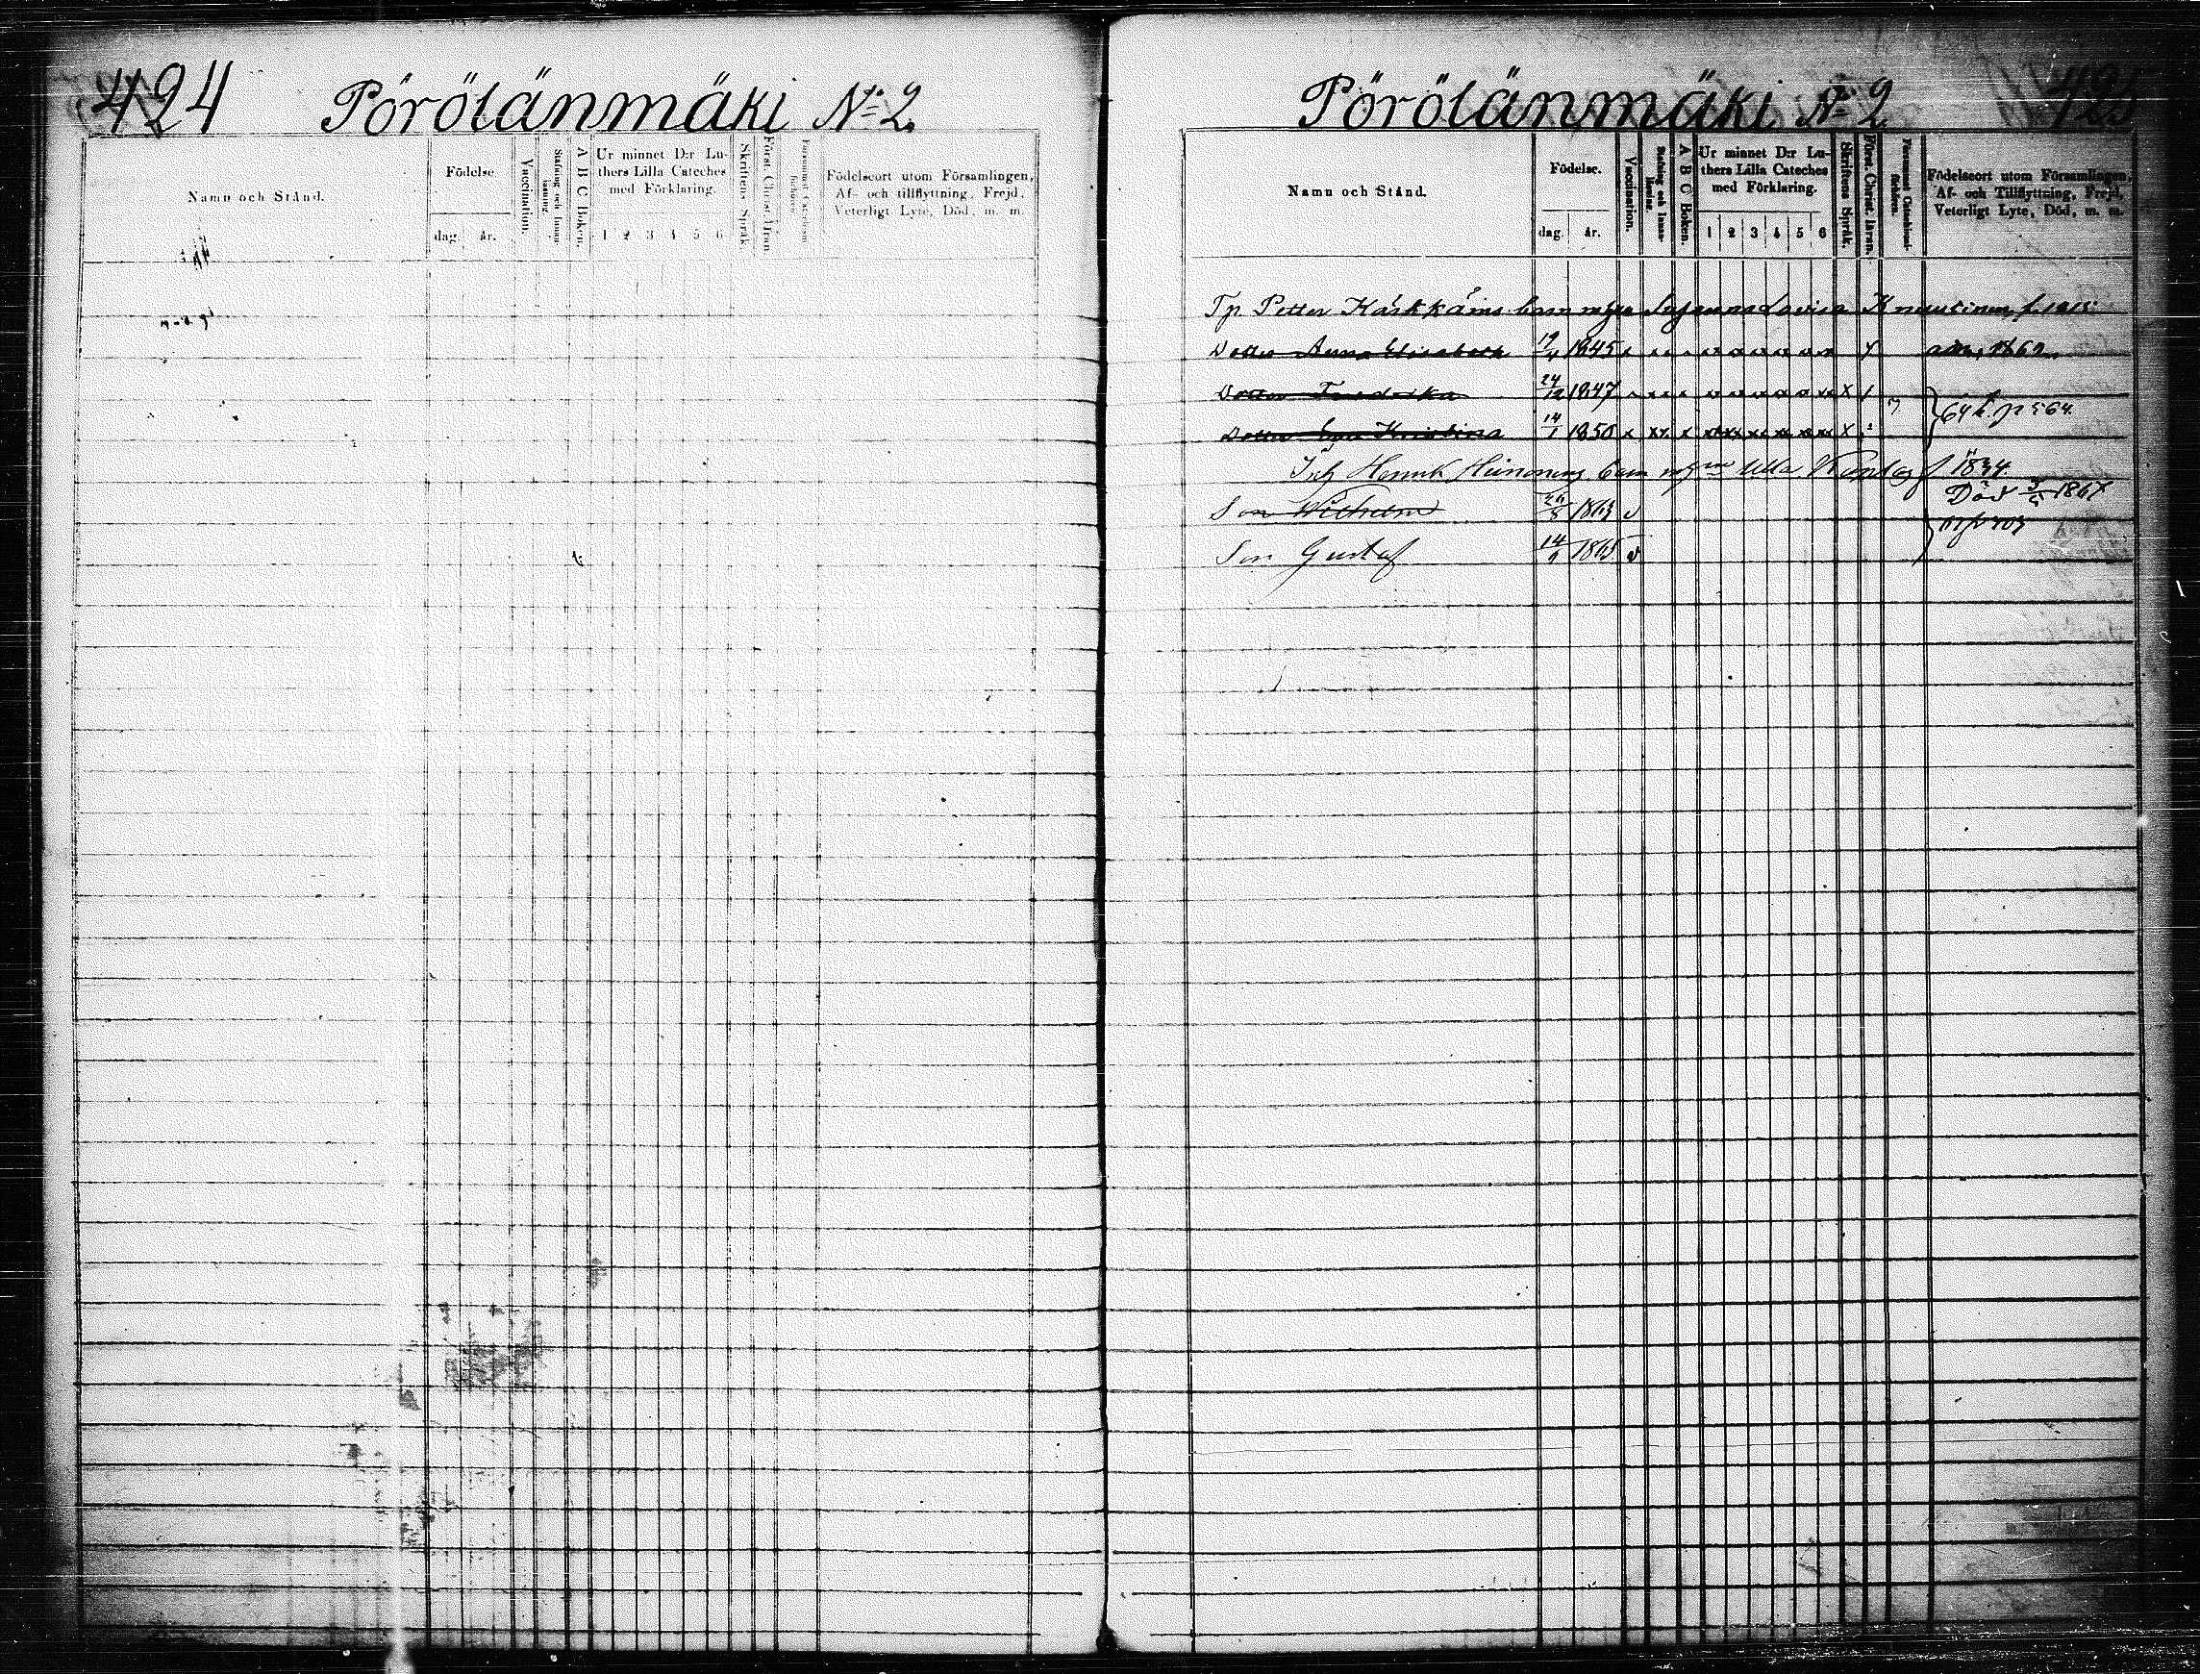 424 Pörölänmäki No 2.
Namn och Stånd.
Födelse
dag. år.
Vaccination.
Stafning och Innanläsning.
A B C Boken.
Ur minnet D:r Luthers Lilla Cateches med Förklaring.
1 2 3 4 5 6
Skriftens Språk.
Först. Christ. läran.
Försummat Catechismiförhören.
Födelseort utom Församlingen,
Af- och tillflyttning, Frejd,
Veterligt Lyte, Död, m. m.
Pörölänmäki No 2 425
Namn och Stånd.
Födelse.
dag. år.
Vaccination.
Stafning och Innanläsning.
A B C Boken.
Ur minnet D:r Luthers Lilla Cateches med Förklaring.
1 2 3 4 5 6
Skriftens Språk.
Först. Christ. läran.
Försummat Catechismiförhören.
Födelseort utom Församlingen,
Af- och Tillflyttning, Frejd,
Veterligt Lyte, Död, m. m.
Tp. Petter Kärkkäins barn m Susanna Lovisa f. 1815
Dotter Anna Elisabeth 1845 x x x x x x x x x x
Dotter Fredrika 24/12 1847 x x x x x x x x x x
Dotter Eva Kristina 14/1 1850 x xx x xx xx xx xx xx xx x 64 p 564.
Henrik Heinonens barn m Ulla f 1834.
Son Wilhelm 26/8 1863 v Död 1867
Son Gustaf 1865 v